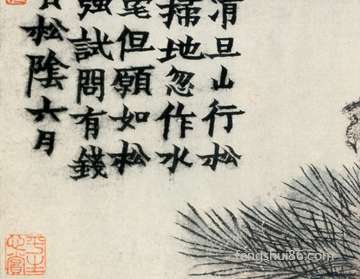 旦山行松
掃地忽作水
但願如松
強試問有錢
松陰六月
fengshui86.com